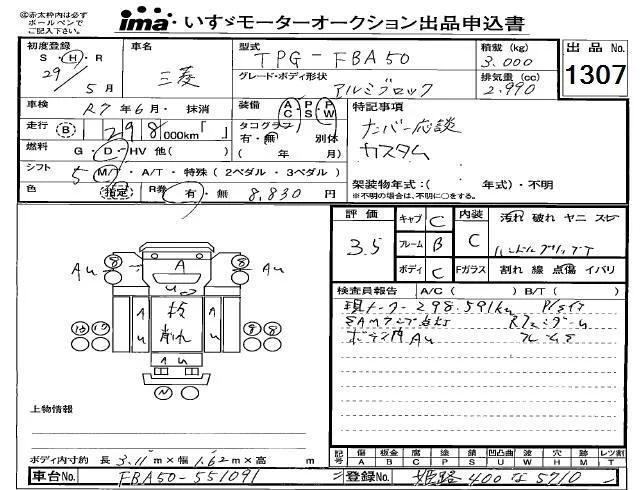 ㊟赤太枠内は必ず
ボールペンで
ご記入下さい。
ima いすゞモーターオークション出品申込書
初度登録 S・H・R 29年 5月
車名 三菱
型式 TPG-FBA50
グレード・ボディ形状 アルミブロック
積載 (kg) 3.000
排気量 (cc) 2.990
出品 No. 1307
車検 R7年6月・抹消
装備 AC PS PW
走行 B 298 000km「 」
タコグラフ 有・無 別体
( 年 月)
燃料 G・D・HV 他( )
シフト 5 M/T・A/T・特殊 (2ペダル・3ペダル)
色 指定 R券 有・無 8,830円
特記事項
ナンバー応談
カスタム
架装物年式:( 年式)・不明
※不明の場合は、不明に○をする。
評価 3.5
キャブ C
フレーム B
ボディ C
内装 C
Fガラス
汚れ 破れ ヤニ スレ
ハンドルグリップT
割れ 線 点傷 イバリ
検査員報告 A/C ( ) B/T ( )
現メーター298.591km
ランプ点灯
ボデー内 Au
Au 8 A 8 Au
U
AU 板 削れ AU
8 8
AU
N
上物情報
ボディ内寸約 長 3.11m×幅 1.62m×高 m
記号 傷 A 板金 B 腐 C 塗 P 錆 S 凹凸曲 U 波 W 穴 H 跡 M 切 T レンズ割
車台No. FBA50-551091
登録No. 姫路 400 な 5710